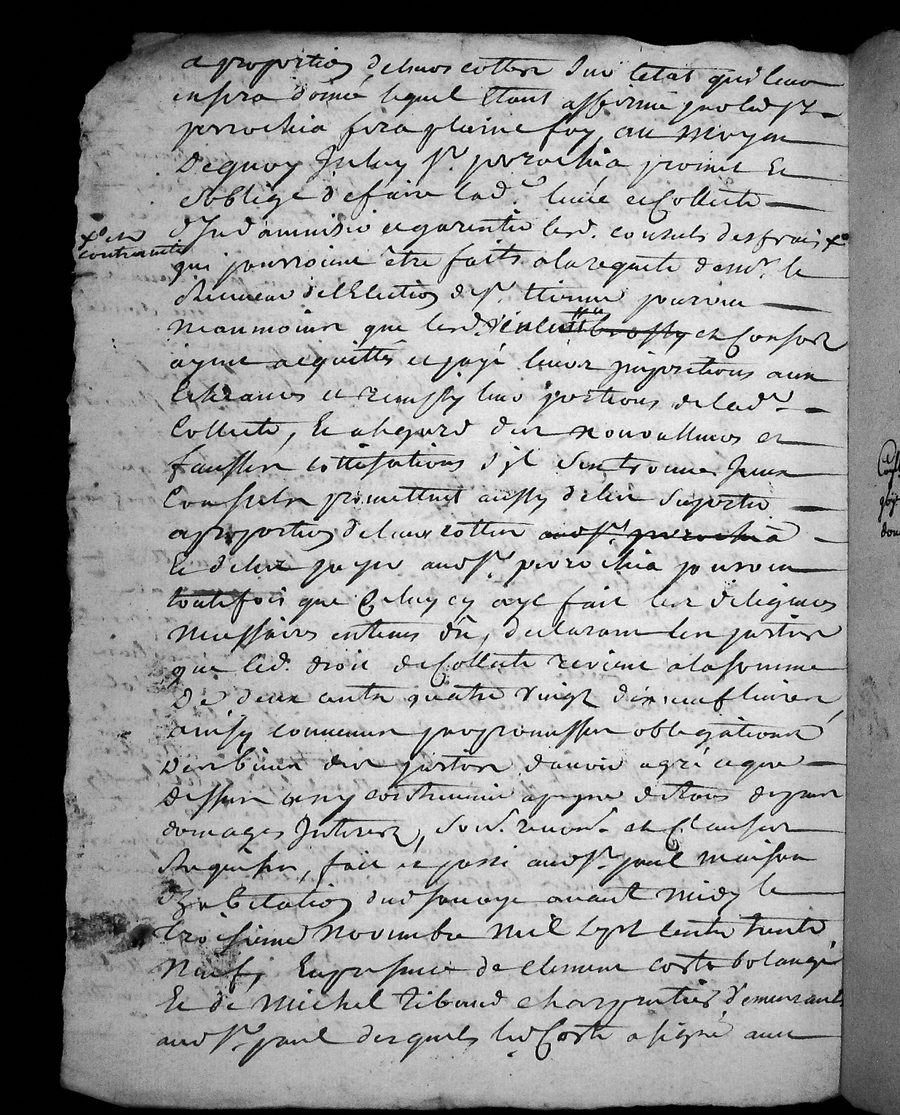 a proportion de leurs cottes sur letat quil leur
en sera donné lequel étant affirmé par led sr
perrochia fera pleine foy, au moyen
dequoy Iceluy sr perrochia promet et
soblige de faire lad. levée et Collecte
d'Indamniser et garentir lesd. consuls des frais xo
xo et
contrainte
qui pourroint être faits ala requete de mr. le
Receveur de l'Election de st. Etienne pourveu
neanmoins que lesd. et Consors
ayent acquittés et payé leurs impositions aux
et leurs portions de lad.
Collecte, Et alegard des non valleurs et
fausses cottisations s'il sen trouve Iceux
Consuls promettent aussy deles suporter
a proportion de leurs cottes aud sr. perrochia
Et deles payer aud sr. perrochia pourveu
toutefois que Celuy cy aye fait les diligences
necessaires en tems dû, declarant les parties
que led. droit de Collecte revient ala somme
De deux cents quatre vingt dix neuf livres,
ainsy convenu par promesses obligations
Des biens des parties d'avoir agréé ce que
dessus et ny contrevenir a peyne de tous depens
domages Interest, soum. renon. et Clauses
Requises, fait et passé aud st. paul maison
D'habitation dud sauvage avant midy le
troisieme Novembre mil sept cents trente
Neuf, En presence de Clement Coste bolangé
Et de Michel Ribaud charpentier demeurants
aud st. paul desquels led Coste a signé avec